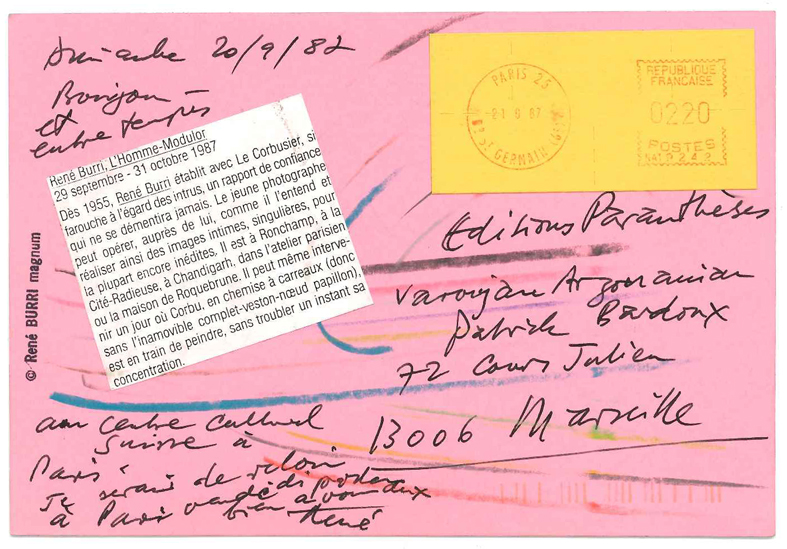 20/9/87
Bonjour
et
entre temps
René Burri, L'Homme-Modulor
29 septembre - 31 octobre 1987
Dès 1955, René Burri établit avec Le Corbusier, si
farouche à l'égard des intrus, un rapport de confiance
qui ne se démentira jamais. Le jeune photographe
peut opérer, auprès de lui, comme il l'entend et
réaliser ainsi des images intimes, singulières, pour
la plupart encore inédites. Il est à Ronchamp, à la
Cité-Radieuse, à Chandigarh, dans l'atelier parisien
ou la maison de Roquebrune. Il peut même interve-
nir un jour où Corbu, en chemise à carreaux (donc
sans l'inamovible complet-veston-nœud papillon),
est en train de peindre, sans troubler un instant sa
concentration.
au centre culturel
Suisse à
Paris
Je serai de retour
à Paris vendredi
bien à vous deux
René
© René BURRI magnum
PARIS 25
ST GERMAIN
REPUBLIQUE
FRANCAISE
0220
POSTES
Editions Paranthèses
Varoujan Arzoumanian
Patrick Bardoux
72 Cours Julien
13006 Marseille